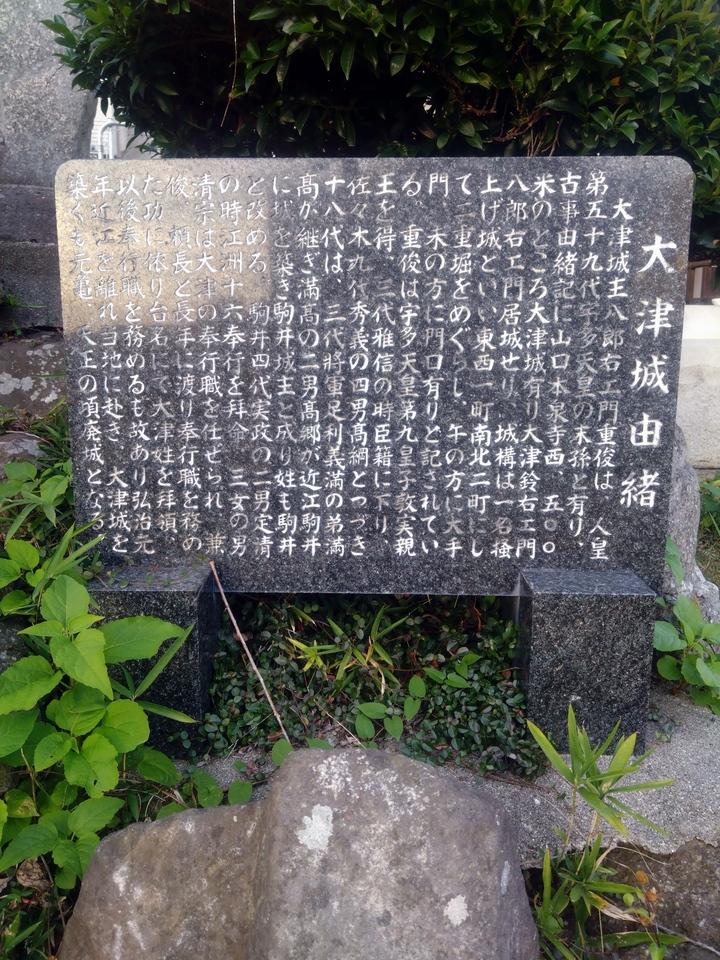 大津城由緒
大津城主八郎右エ門重俊は 人皇
第五十九代宇多天皇の末孫と有り、
古事由緒記に山口本泉寺西 五〇〇
米のところ大津城有り大津鈴右エ門
八郎右エ門居城せり、城構は一名掻
上げ城といい、東西一町南北二町にし
て二重堀をめぐらし、午の方に大手
門 末の方に門口有りど記されてい
る 重俊は宇多天皇第九皇子敦実親
王を得、三代雅信の時臣籍に下り、
佐々木九代秀義の四男髙綱とつづき
十八代は、三代將軍足利義満の弟満
髙が継ぎ満髙の二男髙郷が近江駒井
に城を築き駒井城主と成り姓も駒井
と改める 駒井四代実政の二男定清
の時江洲十六奉行を拜命 三女の男
清宗は大津の奉行職を任せられ 兼
俊 頼長と長手に渡り奉行職を務め
た功に依り台名にて大津姓を拜領、
以後奉行職を務めるも故あり弘治元
年近江を離れ当地に赴き 大津城を
築くも元亀 天正の頃廃城となる